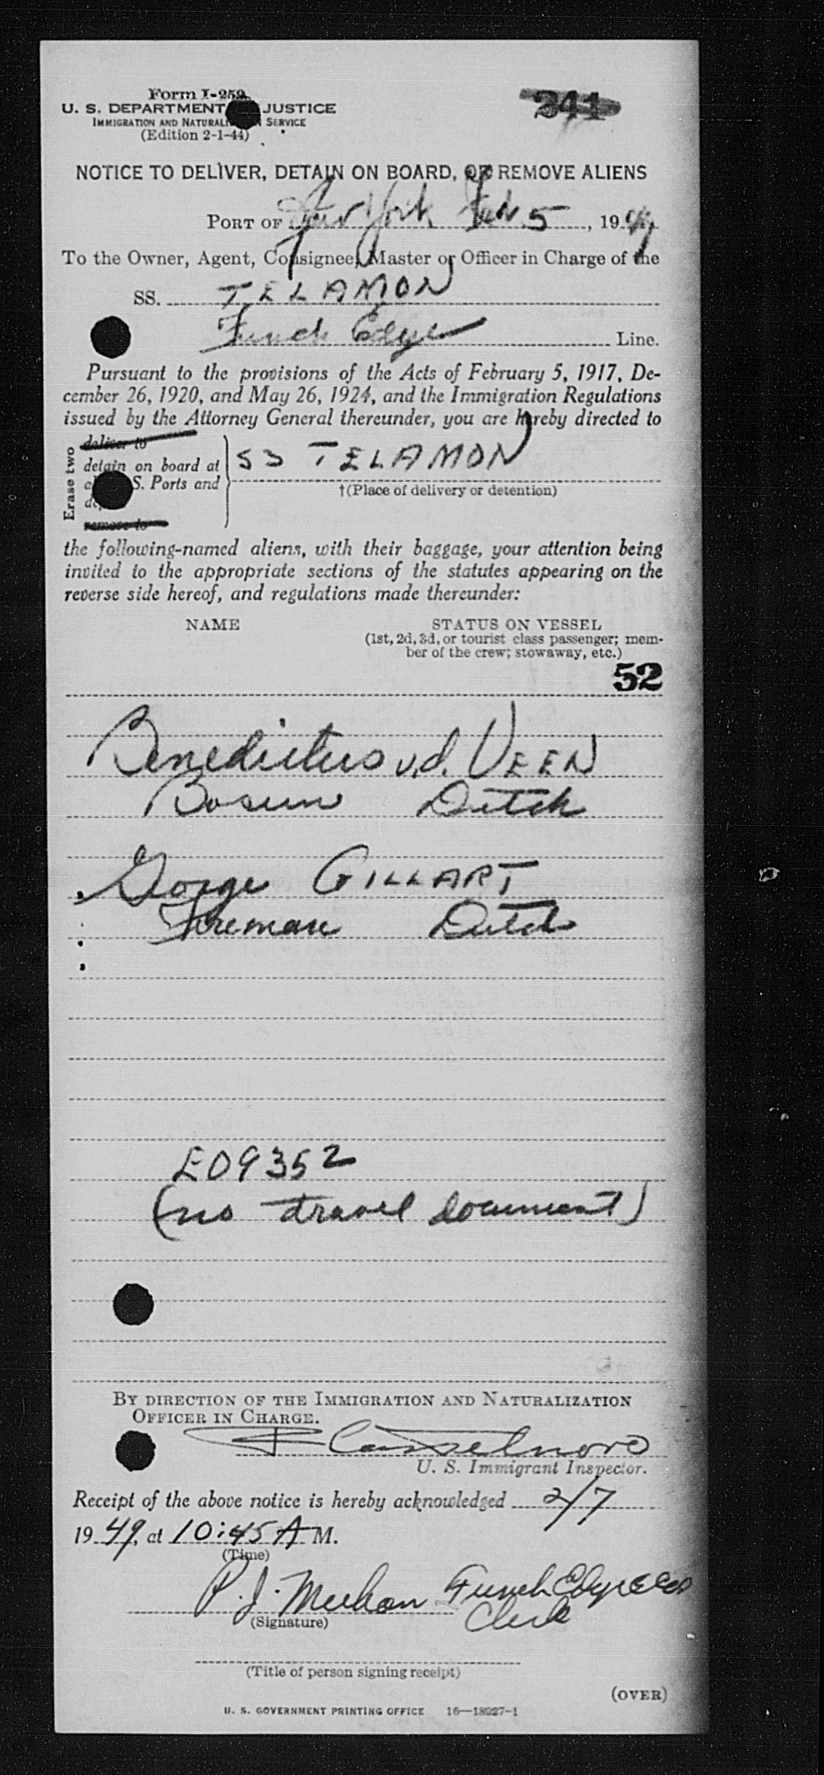 Form I-259
U. S. DEPARTMENT JUSTICE
IMMIGRATION AND NATURALI SERVICE
(Edition 2-1-44)
241
NOTICE TO DELIVER, DETAIN ON BOARD, OR REMOVE ALIENS
PORT OF New York Feb 5, 1949
To the Owner, Agent, Consignee, Master or Officer in Charge of the
SS. TELAMON
Funch Edye Line.
Pursuant to the provisions of the Acts of February 5, 1917, De-
cember 26, 1920, and May 26, 1924, and the Immigration Regulations
issued by the Attorney General thereunder, you are hereby directed to
Erase two
deliver to
detain on board at
S. Ports and
remove to
SS TELAMON
†(Place of delivery or detention)
the following-named aliens, with their baggage, your attention being
invited to the appropriate sections of the statutes appearing on the
reverse side hereof, and regulations made thereunder:
NAME STATUS ON VESSEL
(1st, 2d, 3d, or tourist class passenger; mem-
ber of the crew; stowaway, etc.)
52
Benedictus v.d. VEEN
Bosun Dutch
George GILLART
Fireman Dutch
E09352
(no travel document)
BY DIRECTION OF THE IMMIGRATION AND NATURALIZATION
OFFICER IN CHARGE.
U. S. Immigrant Inspector.
Receipt of the above notice is hereby acknowledged 2/7
1949, at 10:45 A M.
(Time)
P. J. Meehan Funch Edye & Co
(Signature) Clerk
(Title of person signing receipt)
(OVER)
U. S. GOVERNMENT PRINTING OFFICE 16—18027-1